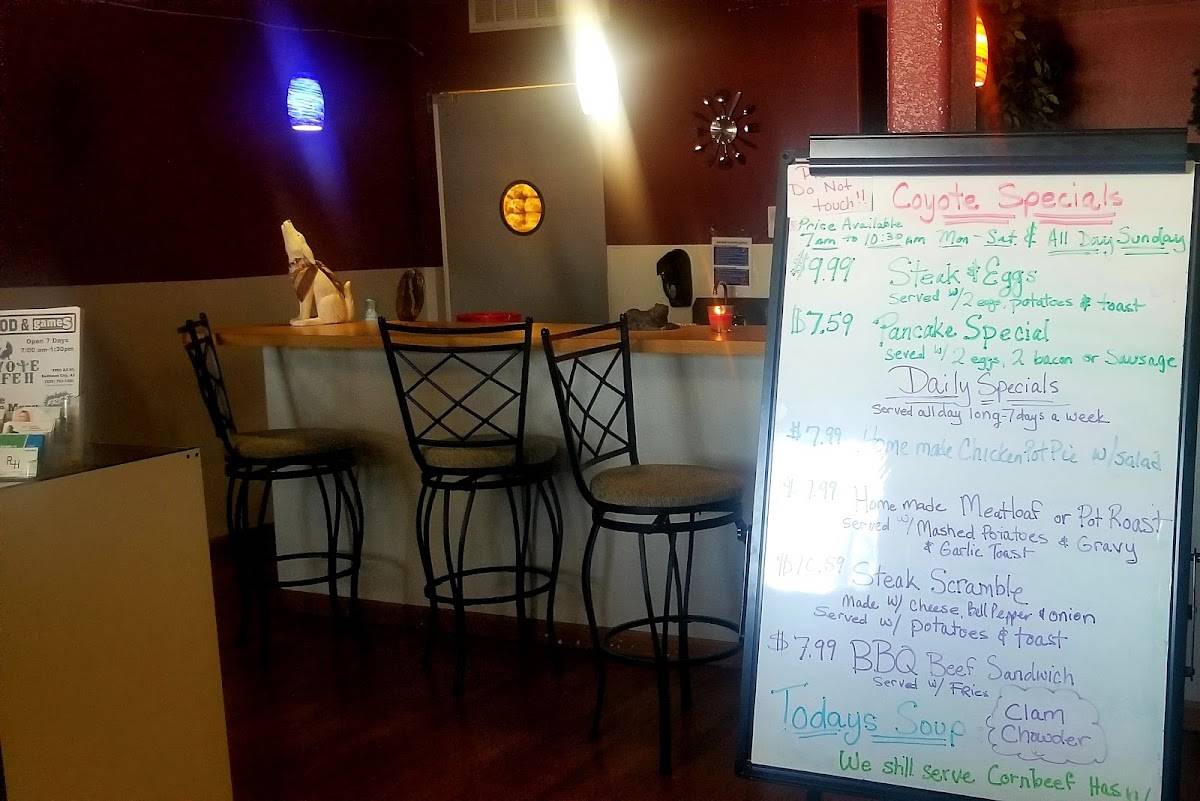 Do Not
touch!!
Coyote Specials
Price Available
7am to 10:30am Mon-Sat. & All Day Sunday
$9.99 Steak & Eggs
Served w/2 eggs, potatoes & toast
$7.59 Pancake Special
Served w/ 2 eggs, 2 bacon or Sausage
Daily Specials
served all day long-7days a week
$7.99 Home made Chicken Pot Pie w/salad
$7.99 Home made Meatloaf or Pot Roast
Served w/ Mashed Potatoes & Gravy
& Garlic Toast
$10.59 Steak Scramble
Made w/ cheese, Bell Pepper & onion
Served w/ potatoes & toast
$7.99 BBQ Beef Sandwich
Served w/ Fries
Todays Soup
Clam
Chowder
We still serve Cornbeef Hash/
OD & games
Open 7 Days
7:00 am-1:30pm
YOTE
FE II